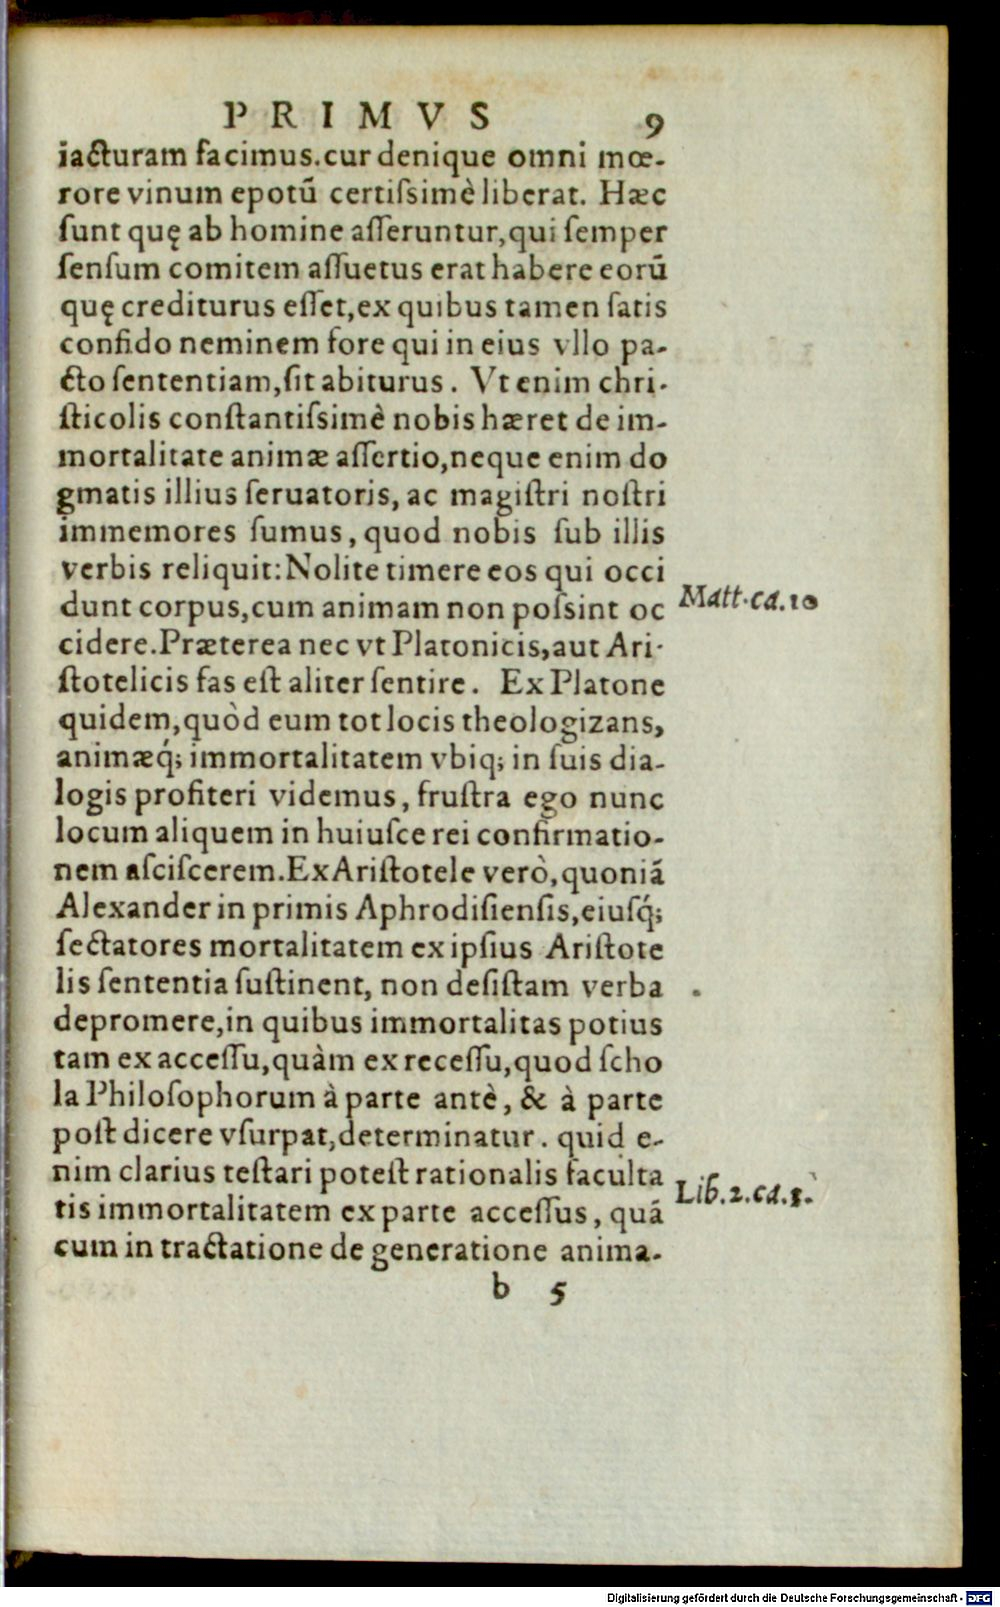 PRIMVS 9
iacturam facimus.cur denique omni mœ-
rore vinum epotũ certiſsimè liberat. Hæc
ſunt quę ab homine aſſeruntur,qui ſemper
ſenſum comitem aſſuetus erat habere eorũ
quę crediturus eſſet,ex quibus tamen ſatis
confido neminem fore qui in eius vllo pa-
cto ſententiam,ſit abiturus. Vt enim chri-
ſticolis conſtantiſsimè nobis hæret de im-
mortalitate animæ aſſertio,neque enim do
gmatis illius ſeruatoris, ac magiſtri noſtri
immemores ſumus, quod nobis ſub illis
verbis reliquit:Nolite timere eos qui occi
dunt corpus,cum animam non poſsint oc
Matt.ca.10
cidere.Præterea nec vt Platonicis,aut Ari-
ſtotelicis fas eſt aliter ſentire. Ex Platone
quidem,quòd eum tot locis theologizans,
animæq́; immortalitatem vbiq; in ſuis dia-
logis profiteri videmus, fruſtra ego nunc
locum aliquem in huiuſce rei confirmatio-
nem aſciſcerem.Ex Ariſtotele verò,quoniã
Alexander in primis Aphrodiſienſis,eiuſq́;
ſectatores mortalitatem ex ipſius Ariſtote
lis ſententia ſuſtinent, non deſiſtam verba
depromere,in quibus immortalitas potius
tam ex acceſſu,quàm ex receſſu,quod ſcho
la Philoſophorum à parte antè, & à parte
poſt dicere vſurpat,determinatur. quid e-
nim clarius teſtari poteſt rationalis faculta
Lib.2.ca.3.
tis immortalitatem ex parte acceſſus, quã
cum in tractatione de generatione anima-
b 5
Digitalisierung gefördert durch die Deutsche Forschungsgemeinschaft - DFG